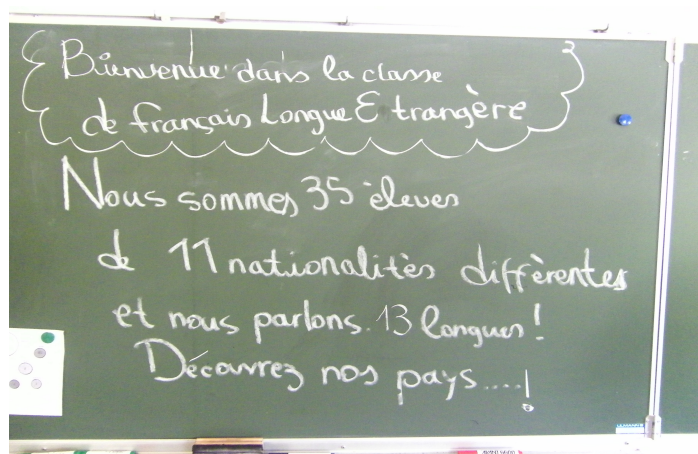 Bienvenue dans la classe
de français Longue Etrangère
Nous sommes 35 élèves
de 11 nationalitès diffèrentes
et nous parlons. 13 longues !
Découvrez nos pays....!